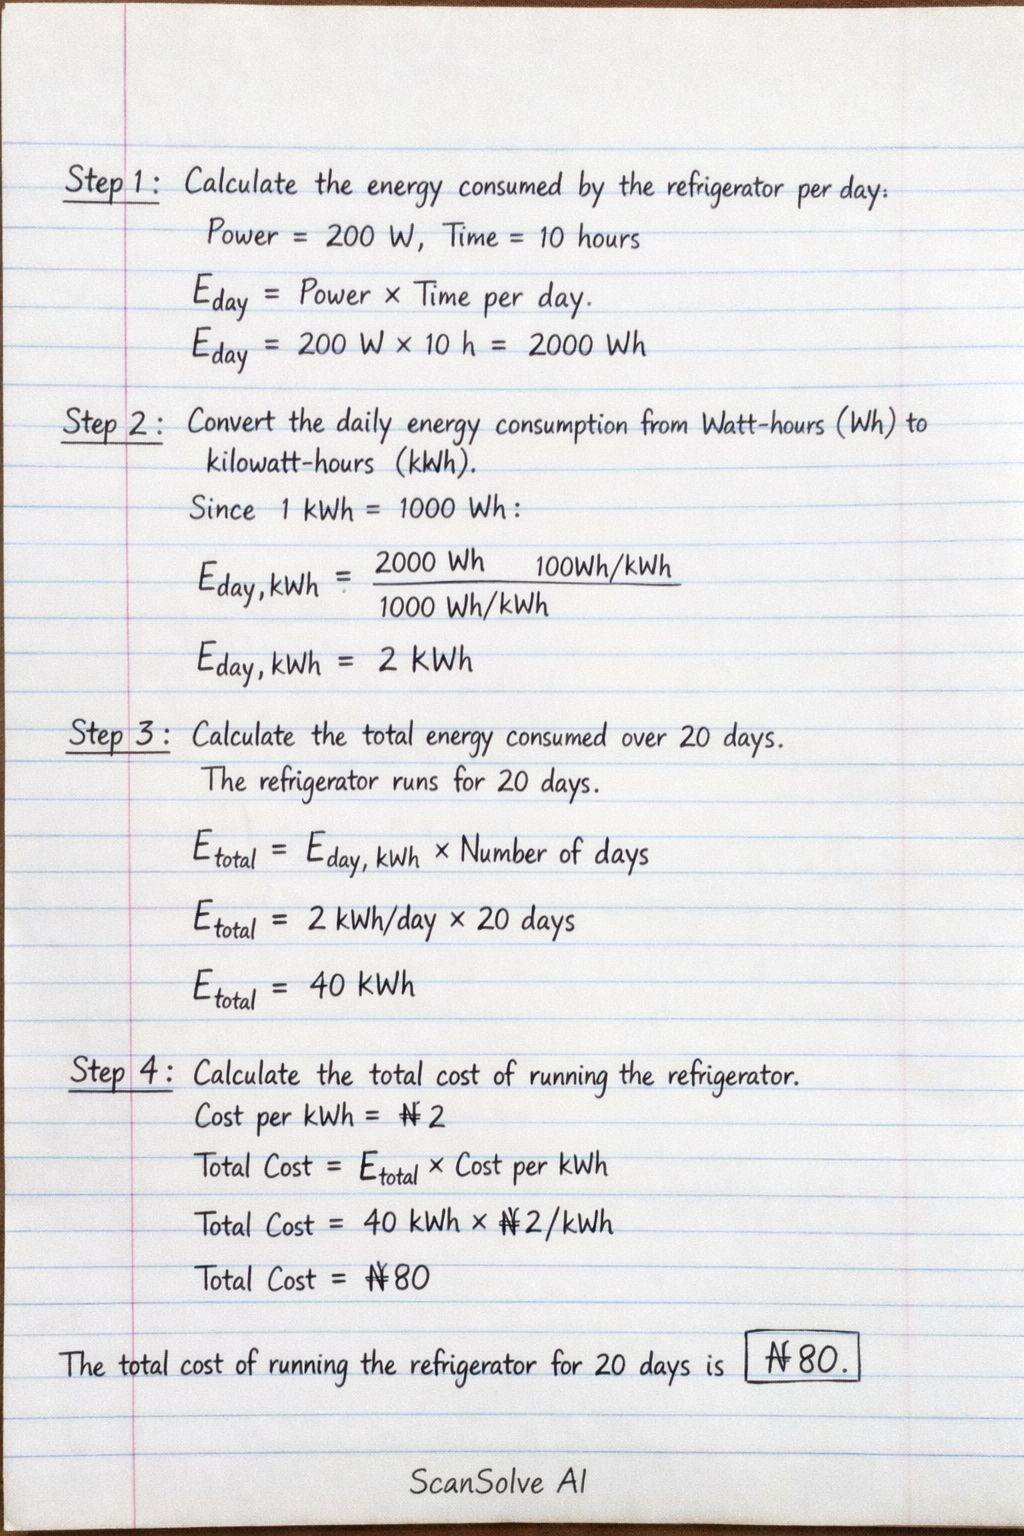 Step 1: Calculate the energy consumed by the refrigerator per day:
Power = 200 W, Time = 10 hours
Eday = Power × Time per day.
Eday = 200 W × 10 h = 2000 Wh
Step 2: Convert the daily energy consumption from Watt-hours (Wh) to
kilowatt-hours (kWh).
Since 1 kWh = 1000 Wh:
Eday, kWh = 2000 Wh 100Wh/kWh
1000 Wh/kWh
Eday, kWh = 2 kWh
Step 3: Calculate the total energy consumed over 20 days.
The refrigerator runs for 20 days.
Etotal = Eday, kWh × Number of days
Etotal = 2 kWh/day × 20 days
Etotal = 40 kWh
Step 4: Calculate the total cost of running the refrigerator.
Cost per kWh = ₦ 2
Total Cost = Etotal × Cost per kWh
Total Cost = 40 kWh × ₦2/kWh
Total Cost = ₦80
The total cost of running the refrigerator for 20 days is ₦80.
ScanSolve AI